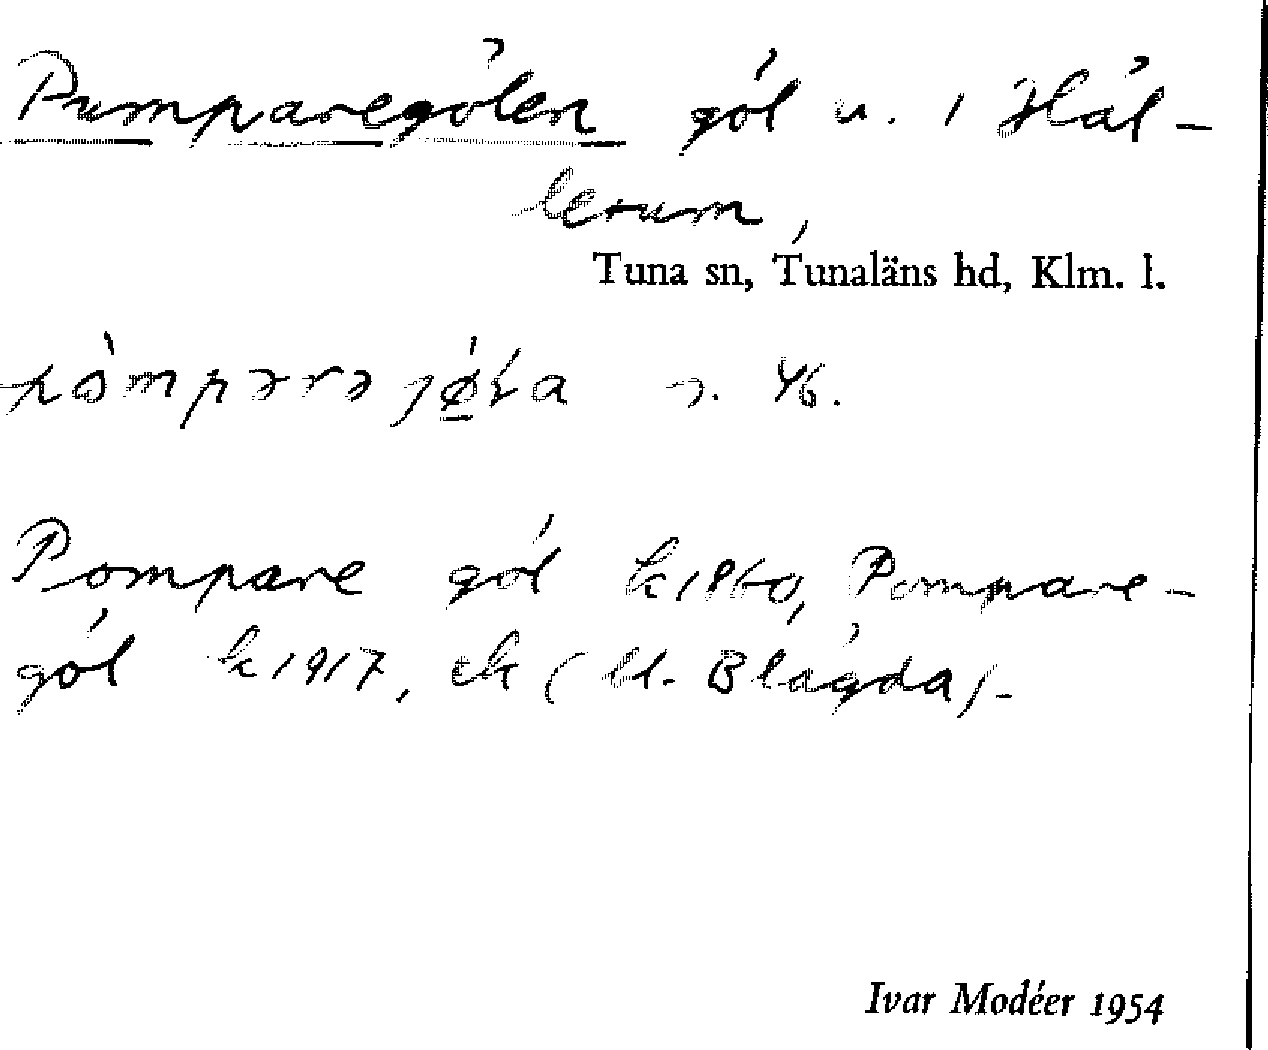 Pumparegölen göl u. i Hål-
lerum,
Tuna sn, Tunaläns hd, Klm. l.
46.
Pompare göl k 1860, Pompare-
göl k 1917, ek ( Blågda).
Ivar Modéer 1954